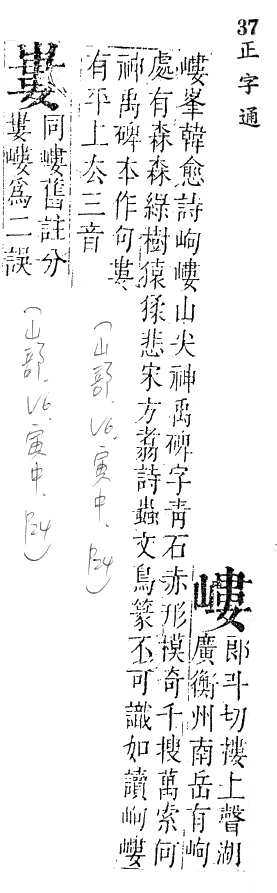 37
正字通
嶁
郎斗切摟上聲湖
廣衡州南岳有岣
嶁峯韓愈詩岣嶁山尖神禹碑字青石赤形模奇千搜萬索何
處有森森綠樹猿猱悲宋方翥詩蟲文鳥篆丕可識如讀岣嶁
神禹碑本作句婁
有平上去三音
(山部, V6, 寅中, B4)
同嶁舊註分
嶁爲二誤
(山部, V6, 寅中, B4)